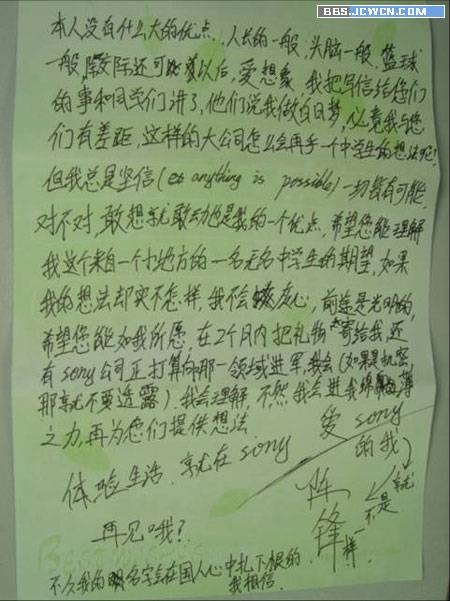 BBS.JCWCN.COM
本人没有什么大的优点,人长的一般,头脑一般,篮球
一般,除还可以以后,爱想象,我把写信给您们
的事和同学们讲了,他们说我做白日梦,必竟我与您
们有差距,这样的大公司怎么会再乎一个中学生的想法呢?
但我总是坚信(anything is possible)一切皆有可能
对不对,敢想就敢动也是我的一个优点,希望您能理解
我这个来自一个小地方的一名无名中学生的期望,如果
我的想法却实不怎样,我不会灰心,前途是光明的,
希望您能如我所愿,在2个月内把礼物寄给我,还
有sony公司正打算向那一领域进军,我会(如果是机密
那就不要透露)我会理解,不然,我会进我绵薄
之力,再为你们提供想法
爱sony
的我
体验生活,就在sony
陈锋
就
不是
一样
再见哦?
不久我的名字会在国人心中扎下根的,
我相信.